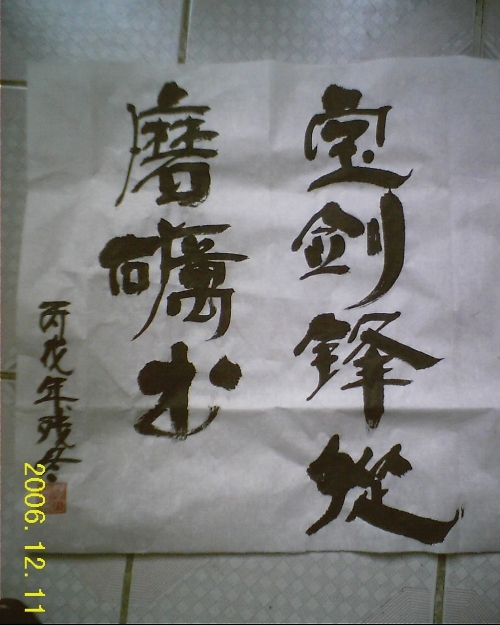 宝剑锋從
磨礪出
丙戌年残冬
2006.12.11